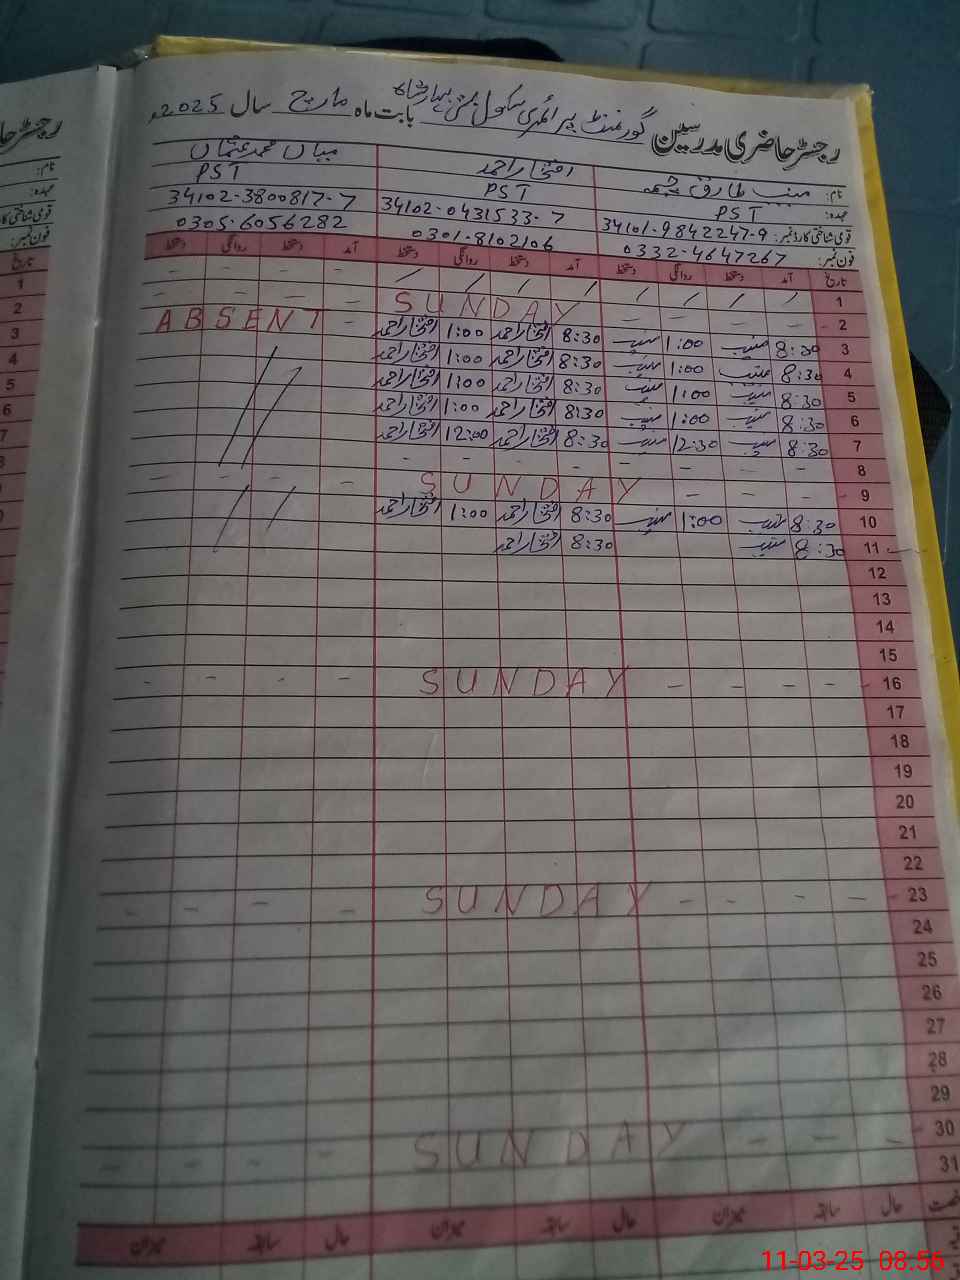 رجسٹر حاضری مدرسین گورنمنٹ پرائمری سکول بابت ماہ مارچ سال 2025ء
نام: منیب طارق چیمہ افتخار احمد میاں محمد عثمان
عہدہ: PST PST PST
قومی شناختی کارڈ نمبر: 34101-9842247-9 34102-0431533-7 34102-3800817-7
فون نمبر: 0332-4647267 0301-8102106 0305-6056282
تاریخ آمد دستخط روانگی دستخط آمد دستخط روانگی دستخط آمد دستخط روانگی دستخط
1 / / / / / / / / - - - -
2 - - - - SUNDAY - - - -
3 8:30 منیب 1:00 منیب 8:30 افتخار احمد 1:00 افتخار احمد - ABSENT
4 8:30 منیب 1:00 منیب 8:30 افتخار احمد 1:00 افتخار احمد
5 8:30 منیب 1:00 منیب 8:30 افتخار احمد 1:00 افتخار احمد
6 8:30 منیب 1:00 منیب 8:30 افتخار احمد 1:00 افتخار احمد
7 8:30 منیب 12:30 منیب 8:30 افتخار احمد 12:00 افتخار احمد
8 - - - - - - - -
9 - - - SUNDAY - - - -
10 8:30 منیب 1:00 منیب 8:30 افتخار احمد 1:00 افتخار احمد
11 8:30 منیب 8:30 افتخار احمد
12
13
14
15
16 - - - - SUNDAY - - - -
17
18
19
20
21
22
23 - - - - SUNDAY - - - -
24
25
26
27
28
29
30 - - - SUNDAY - - - -
31
حال سابقہ میزان حال سابقہ میزان حال سابقہ میزان
11-03-25 08:56